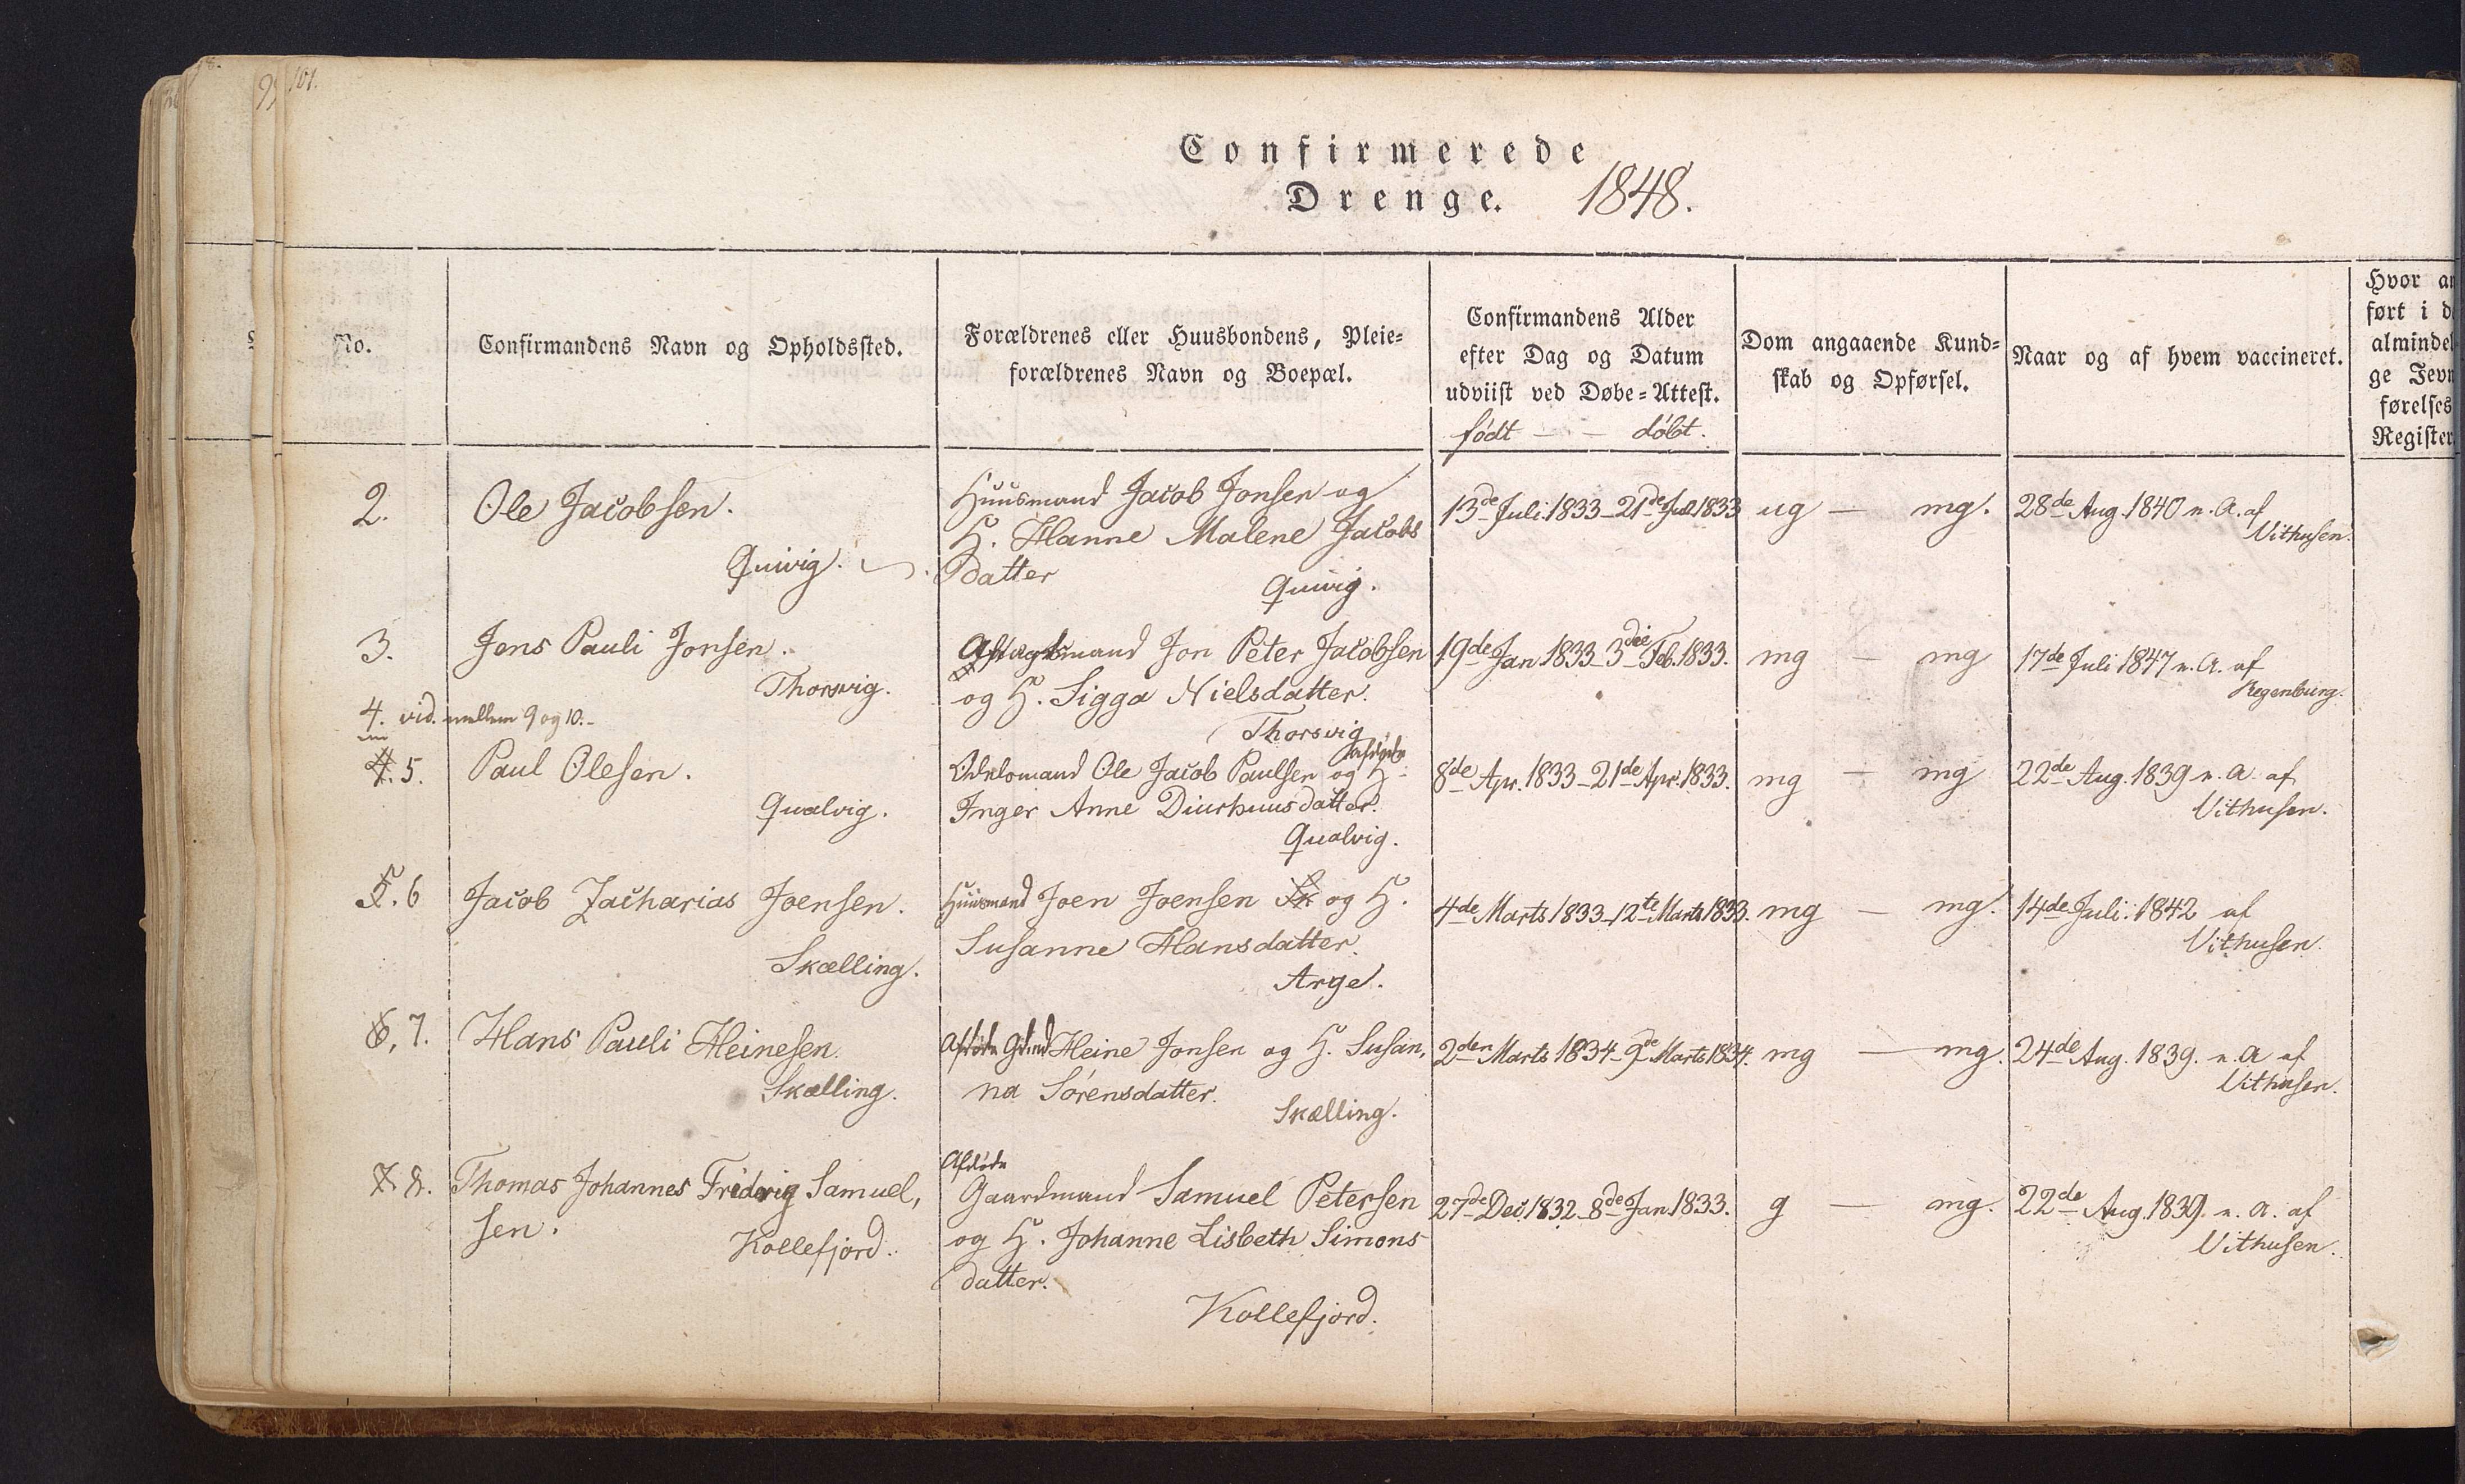 101.
Confirmerede
Drenge. 1848.
No.
Confirmandens Navn og Opholdssted.
Forældrenes eller Huusbondens, Pleie-
forældrenes Navn og Boepæl.
Confirmandens Alder
efter Dag og Datum
udviist ved Døbe-Attest.
født — — døbt.
Dom angaaende Kund-
skab og Opførsel.
Naar og af hvem vaccineret.
Hvor an
ført i d
almindel
ge Jevn
førelses
Register.
2.
Ole Jacobsen.
Quivig.
Huusmand Jacob Jonsen og
H. Hanne Malene Jacobs
datter
Quivig.
13de Juli 1833 - 21de Jul 1833
ug — mg.
28de Aug. 1840 n. A. af
Vithusen.
3.
Jens Pauli Jonsen.
Thorsvig.
Aftægtsmand Jon Peter Jacobsen
og H. Sigga Nielsdatter.
Thorsvig
19de Jan 1833 - 3die Feb. 1833.
mg — mg
17de Juli 1847 n. A. af
Regenburg.
4. vid. mellem 9 og 10.-
4. 5.
Paul Olesen.
Qualvig.
afdøde
Odelsmand Ole Jacob Paulsen og H.
Inger Anne Diurhuusdatter.
Qualvig.
8de Apr. 1833 - 21de Apr. 1833.
mg — mg
22de Aug. 1839 n. A. af
Vithusen.
5. 6
Jacob Zacharias Joensen.
Skælling.
Huusmand Joen Joensen og H.
Susanne Hansdatter.
Arge.
4de Marts 1833 - 12te Marts 1833.
mg — mg.
14de Juli 1842 af
Vithusen.
6. 7.
Hans Pauli Heinesen.
Skælling.
Afdøde Gdmd Heine Jonsen og H. Susan,
na Sørensdatter.
Skælling.
2den Marts 1834 - 9de Marts 1834.
mg — mg.
24de Aug. 1839. n. A af
Vithusen.
7. 8.
Thomas Johannes Frederig Samuel,
sen.
Kollefjord.
Afdøde
Gaardmand Samuel Petersen
og H. Johanne Lisbeth Simons
datter.
Kollefjord.
27de Dec. 1832 - 8de Jan 1833.
g — mg.
22de Aug. 1839. n. A. af
Vithusen.